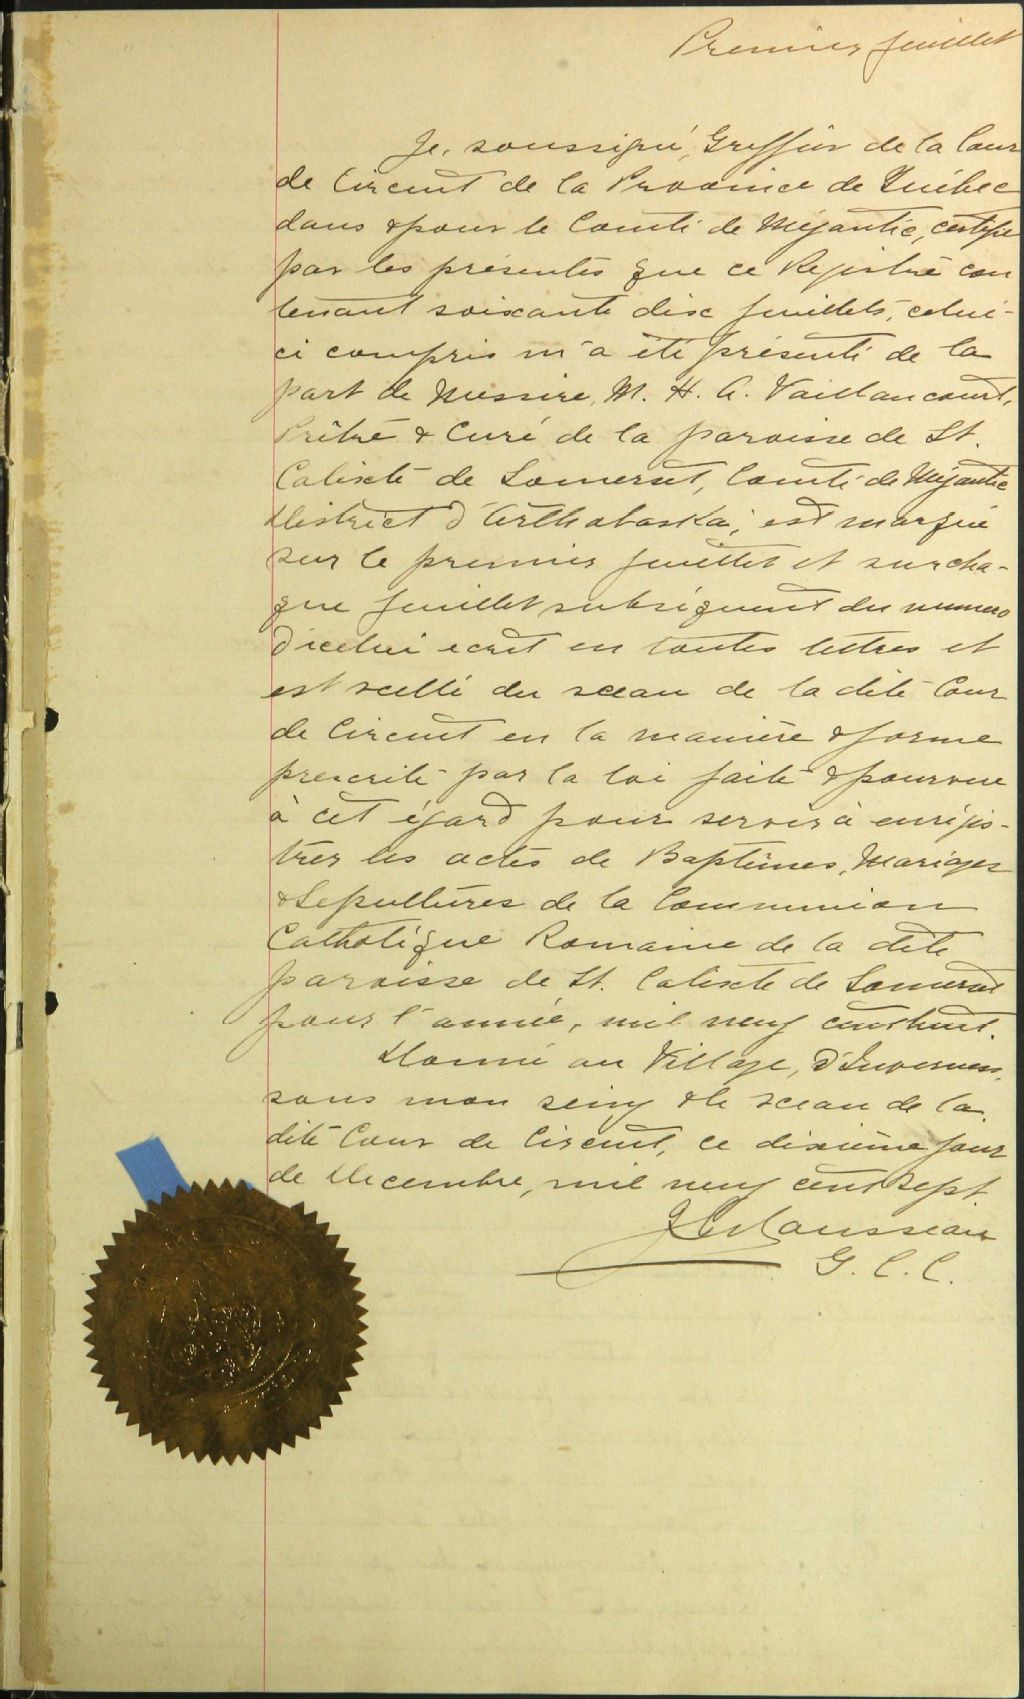 Premier feuillet
Je, soussigné, Greffier de la Cour
de Circuit de la Province de Québec
dans & pour le Comté de Mégantic, certifie
par les présentes que ce Registre con
tenant soixante dix feuillets, celui-
ci compris m'a été présenté de la
part de Messire, M. H. A. Vaillancourt,
Prêtre & Curé de la paroisse de St.
Calixte de Somerset, Comté de Mégantic
District d'Arthabaska, est marqué
sur le premier feuillet et sur cha-
que feuillet subséquent du numero
d'icelui ecrit en toutes lettres et
est scellé du sceau de la dite Cour
de Circuit en la manière & forme
prescrite par la loi faite & pourvue
à cet égard pour servir à enrégis-
trer les actes de Baptêmes, Mariages
& Sepultures de la Communion
Catholique Romaine de la dite
paroisse de St. Calixte de Somerset
pour l'année, mil neuf cent huit.
Donné au Village, d'Inverness,
sous mon seing & le sceau de la
dite Cour de Circuit, ce dixième jour
de Decembre, mil neuf cent sept.
Rousseau
G. C. C.